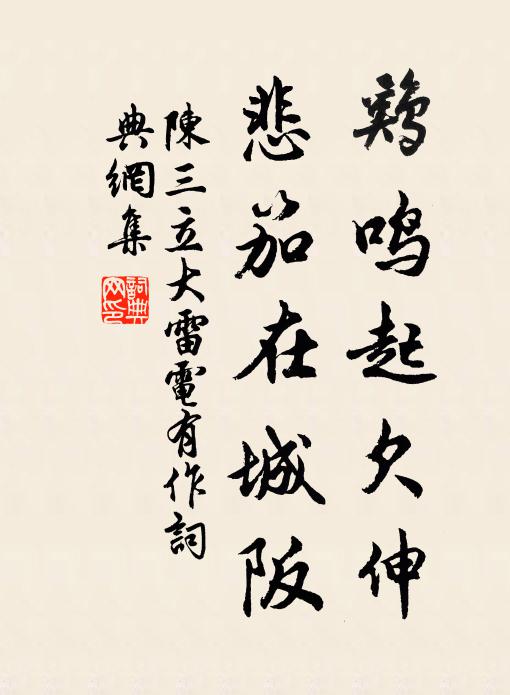 鷄鳴起欠伸
悲笳在城阪
陳三立大雷電有作詞
典網集
詞典網印